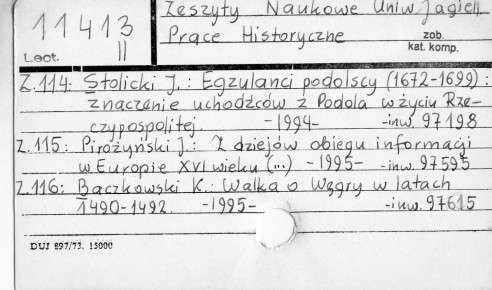 11413
II
Lect.
Zeszyty Naukowe Uniw. Jagiell
Prace Historyczne
zob.
kat. komp.
Z.114: Stolicki J.: Egzulanci podolscy (1672-1699) :
znaczenie uchodźców z Podola w życiu Rze-
czypospolitej. -1994- -inw. 97198
Z.115: Pirożyński J.: Z dziejów obiegu informacji
w Europie XVI wieku (...) -1995- -inw. 97595
Z.116: Baczkowski K.: Walka o Węgry w latach
1490-1492. -1995- -inw. 97615
DUJ 897/73. 15000